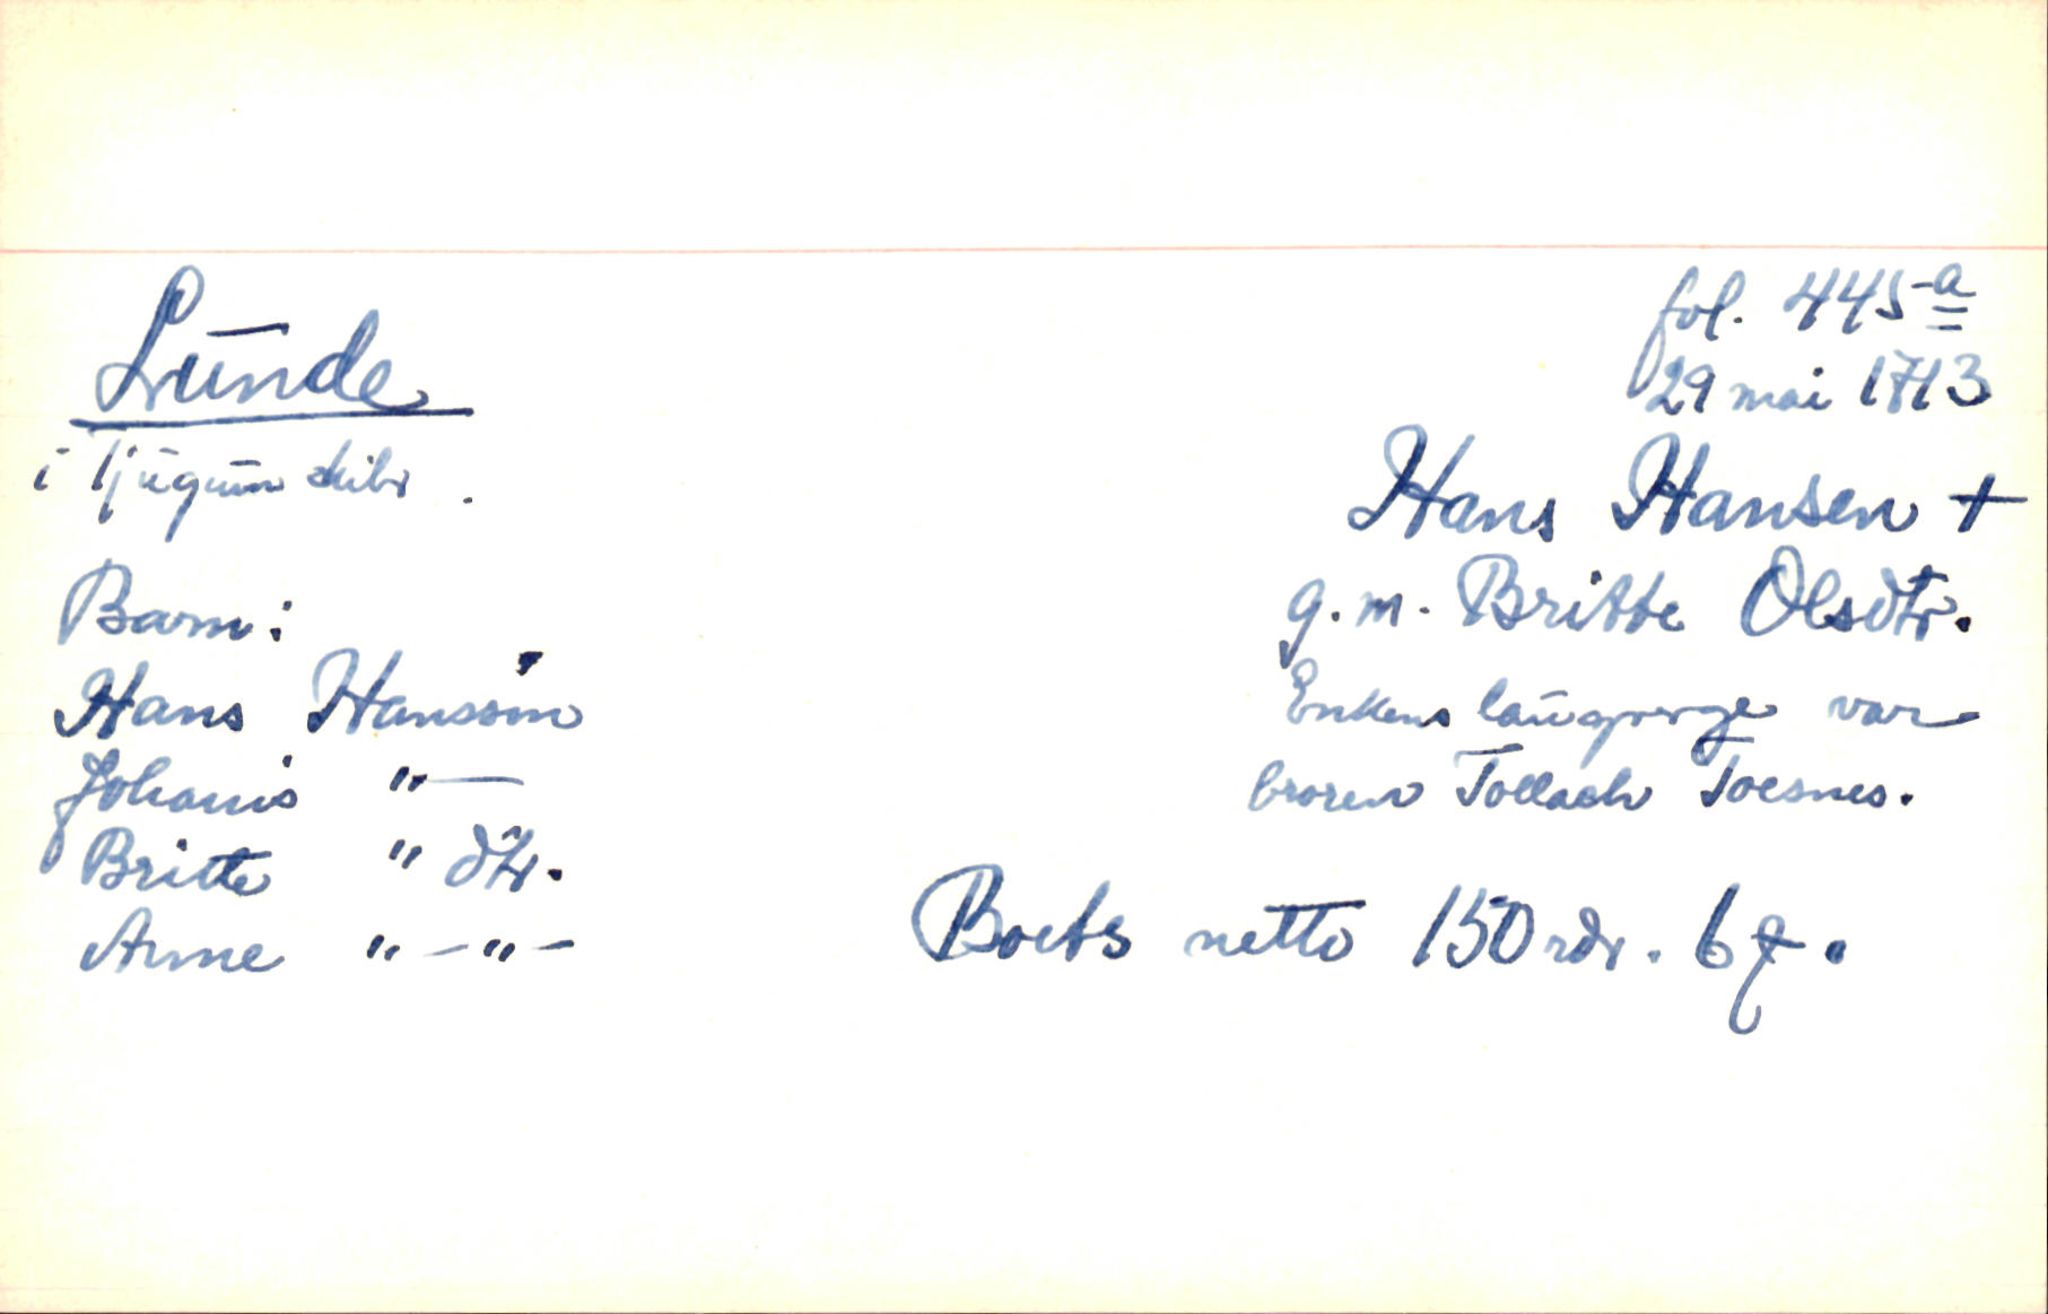 Lunde
i Ljugum skibr.
fol. 445-a
29 mai 1713
Hans Hansen +
g.m. Britte Olsdtr.
Enkens laugverge var
broren Tollach Toesnes.
Boets netto 150 rdr. 6
Barn:
Hans Hanssøn
Johanis "—
Britte " dtr.
Anne " — " —